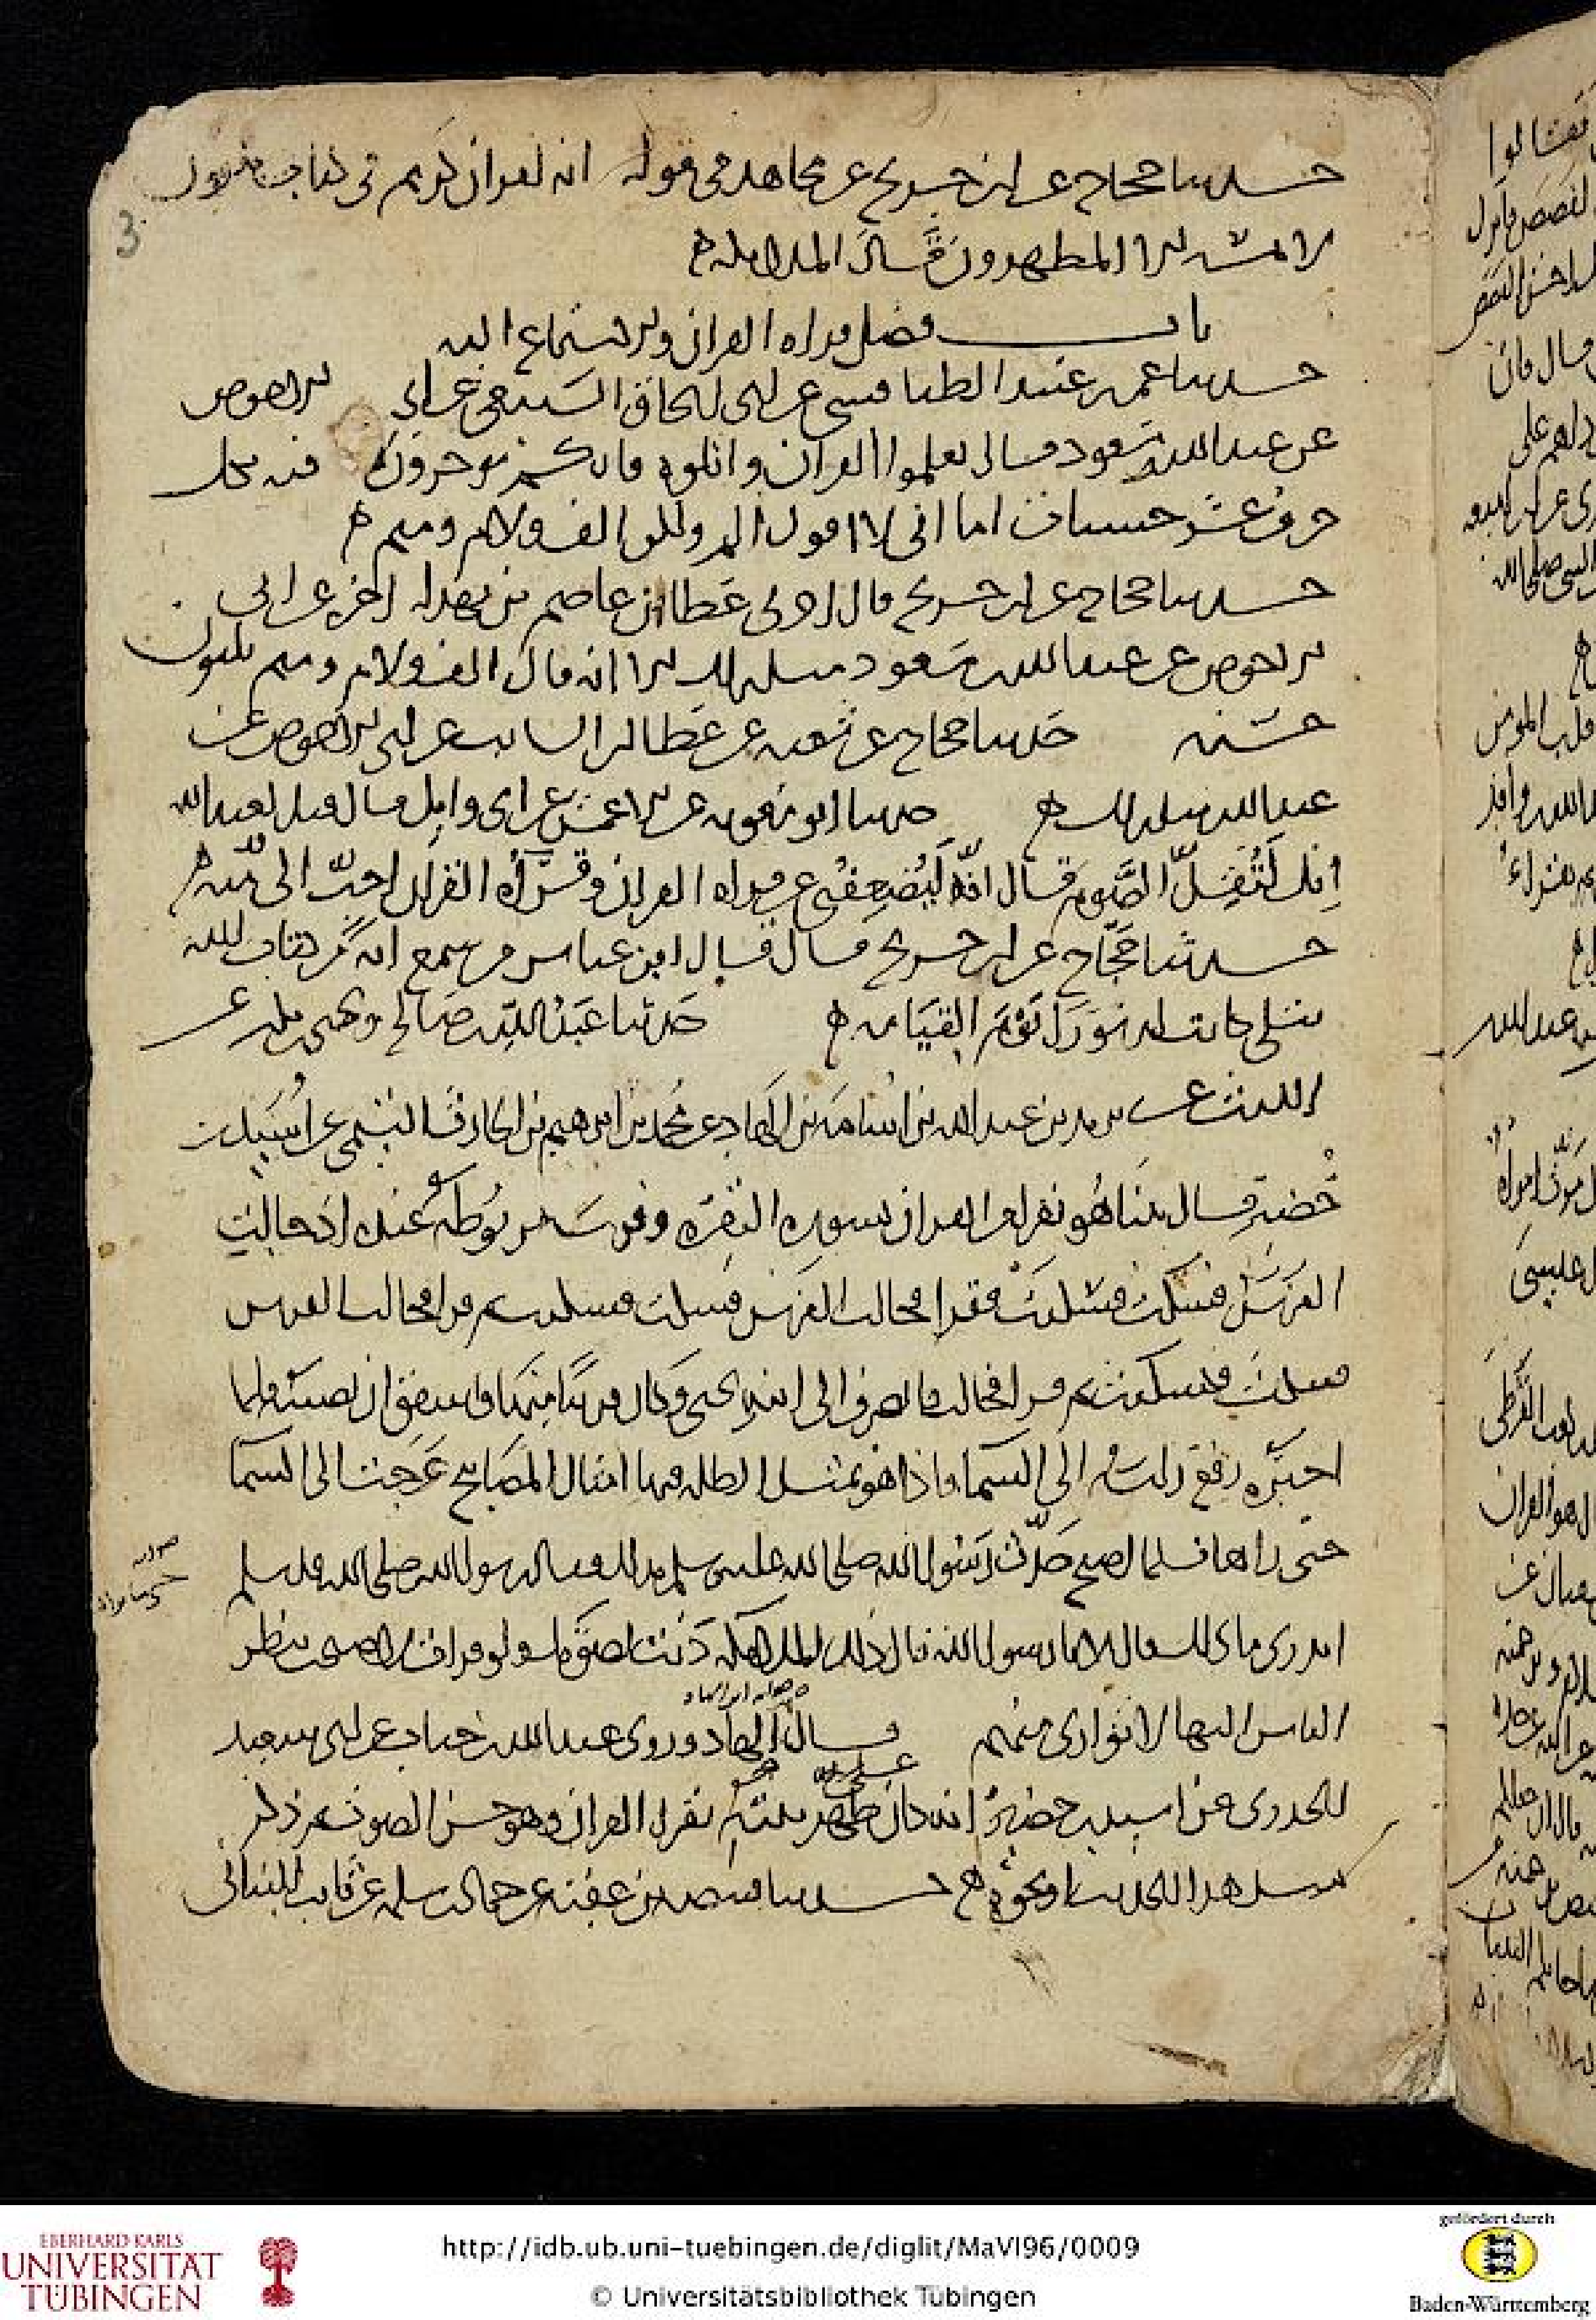 حدثنا حجاج عن ابن جريج عن مجاهد في قوله انه لقران كريم في كتاب مكنون
لا يمسه الا المطهرون قال الملائكة ه
باب فضل قراه القران والاستماع اليه
حدثنا عمر بن عبيد الطنافسي عن ابي اسحاق السبيعي عن ابي الاحوص
عن عبد الله بن مسعود قال تعلموا القران واتلوه فانكم توجرون فيه بكل
حرف عشر حسنات اما اني لا اقول الم ولكن الف ولام وميم ه
حدثنا حجاج عن ابن جريج قال اخبرني عطا ان عاصم بن بهدله اخبره عن ابي
الاحوص عن عبد الله بن مسعود مثل ذلك الا انه قال الف ولام وميم ثلثون
حسنه حدثنا حجاج عن شعبه عن عطا بن السايب عن ابي الاحوص عن
عبد الله مثل ذلك ه حدثنا ابو معويه عن الاعمش عن ابي وايل قال قيل لعبد الله
انك لتقل الصوم قال انه ليضعفني عن قراه القران وقراه القران احب الي منه ه
حدثنا حجاج عن ابن جريج قال قال ابن عباس من سمع ايه من كتاب الله
تتلى كانت له نورا يوم القيامه ه حدثنا عبد الله بن صالح ويحيى بن بكير عن
الليث عن يزيد بن عبد الله بن اسامه بن الهاد عن محمد بن ابرهيم بن الحارث التيمي عن اسيد بن
حضير قال بينا هو يقرا من القران سوره البقره وفرسه مربوطه عنده اذ جالت
الفرس فسكت فسكنت فقرا فجالت الفرس فسكت فسكنت ثم قرا فجالت الفرس
فسكت فسكنت ثم قرا فجالت فانصرف الى ابنه يحيى وكان قريبا منها فاشفق ان تصيبه فلما
اجتره رفع راسه الى السما فاذا هو بمثل الظله فيها امثال المصابيح عرجت الى السما
حتى ما يراها فلما اصبح حدث رسول الله صلى الله عليه وسلم بذلك فقال رسول الله صلى الله عليه وسلم
اتدري ما ذلك قال لا يا رسول الله قال ذلك الملائكه دنت لصوتك ولو قرات لاصبحت ينظر
الناس اليها لا تتوارى منهم قال ابن الهاد وروى عبد الله بن خباب عن ابي سعيد
صوابه ابن الهاد
الخدري عن اسيد بن حضير انه كان على ظهر بيته يقرا القران وهو حسن الصوت ثم ذكر
مثل هذا الحديث او نحوه ه حدثنا قبيصه بن عقبه عن حماد بن سلمه عن ثابت البناني
3
صوابه
حتى ما يراها
EBERHARD KARLS
UNIVERSITÄT
TÜBINGEN
http://idb.ub.uni-tuebingen.de/diglit/MaVI96/0009
© Universitätsbibliothek Tübingen
gefördert durch
Baden-Württemberg